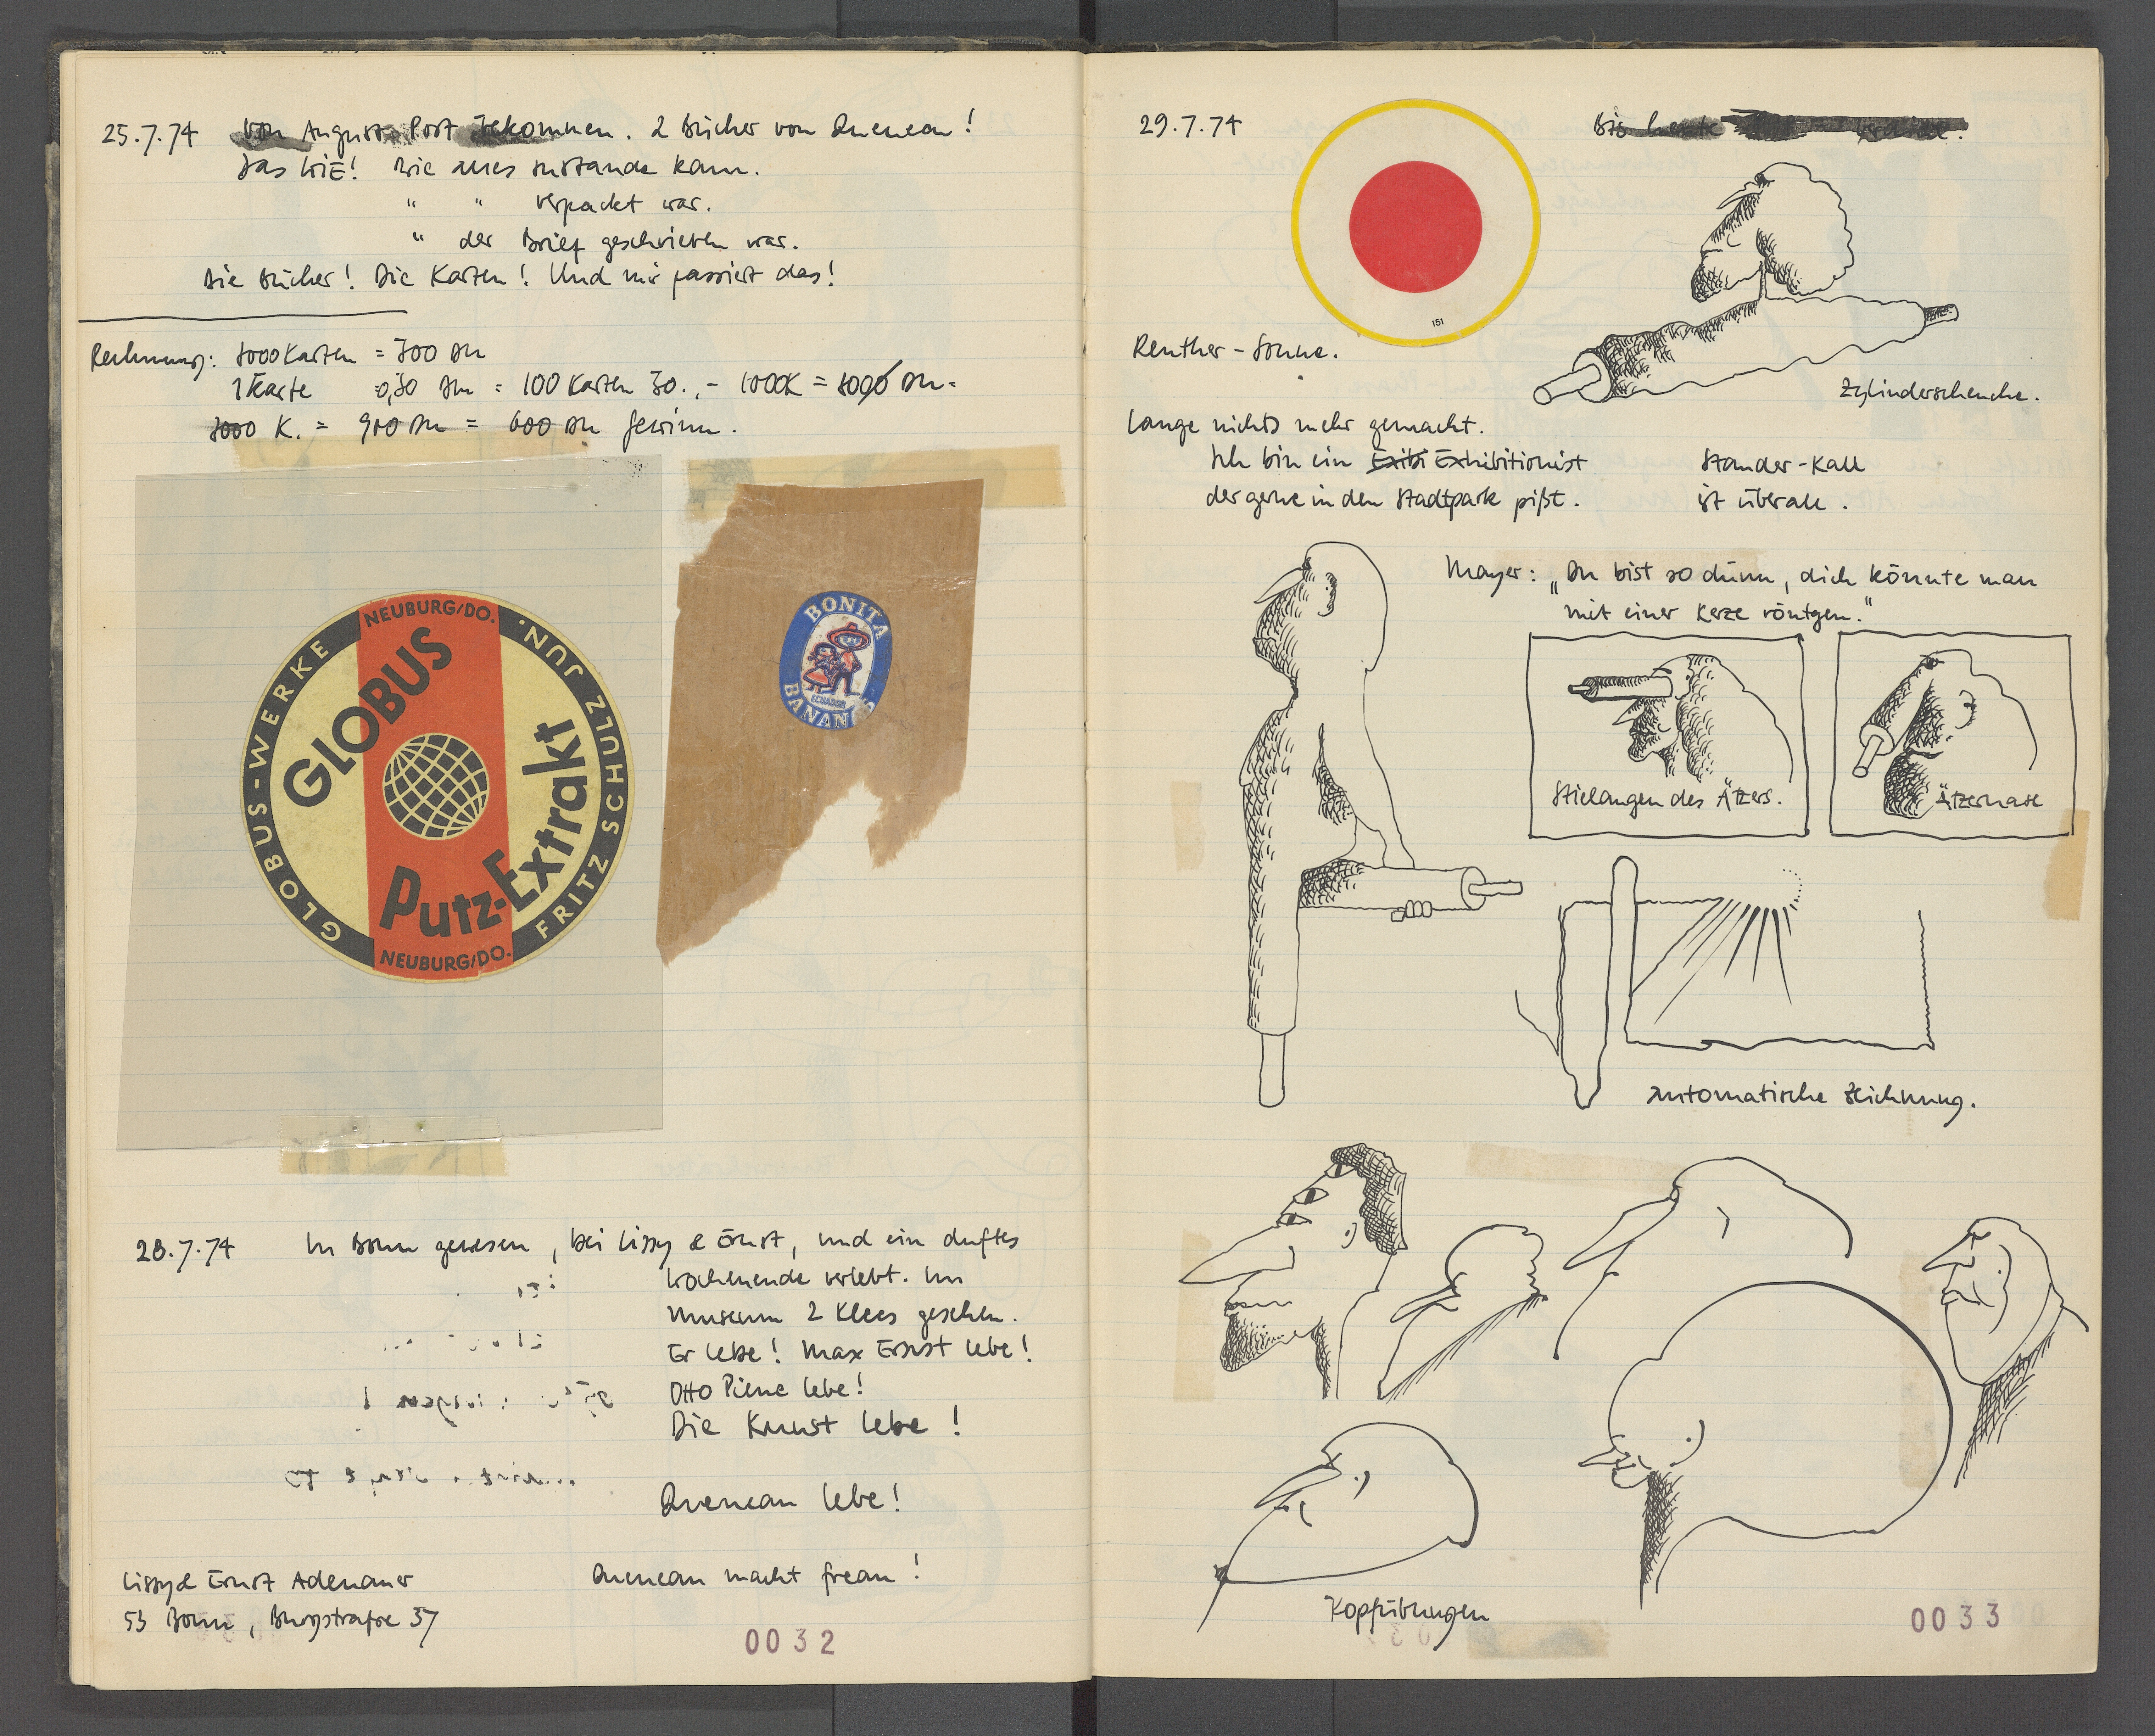 25.7.74 Von August Post bekommen. 2 Bücher von Queneau!
Das WIE! Wie alles zustande kam.
" " verpackt war.
" der Brief geschrieben war.
Die Bücher! Die Karten! Und mir passiert das!
Rechnung: 3000 Karten = 300 DM
1 Karte 0,30 DM = 100 Karten 30.,- 1000K = DM.
3000 K. = 900 DM = 600 DM Gewinn.
NEUBURG/DO.
GLOBUS-WERKE
FRITZ SCHULZ JUN.
GLOBUS
Putz-Extrakt
NEUBURG/DO.
BONITA
ECUADOR
BANANAS
28.7.74 In Bonn gewesen, bei Lissy & Ernst, und ein duftes
Wochenende verlebt. Im
Museum 2 Klees gesehen.
Er lebe! Max Ernst lebe!
Otto Piene lebe!
Die Kunst lebe!
Queneau lebe!
Lissy & Ernst Adenauer
Queneau macht freau!
53 Bonn, Burgstraße 37
0032
29.7.74
Bis heute
151
Reuther-Sonne.
Zylinderscheuche.
Lange nichts mehr gemacht.
Ich bin ein Exibi Exhibitionist
der gerne in den Stadtpark pißt.
Stander-Kall
ist überall.
Mayer: „Du bist so dünn, dich könnte man
mit einer Kerze röntgen."
Stielaugen des Ätzers.
Ätzernase
Automatische Zeichnung.
Kopfübungen
0033